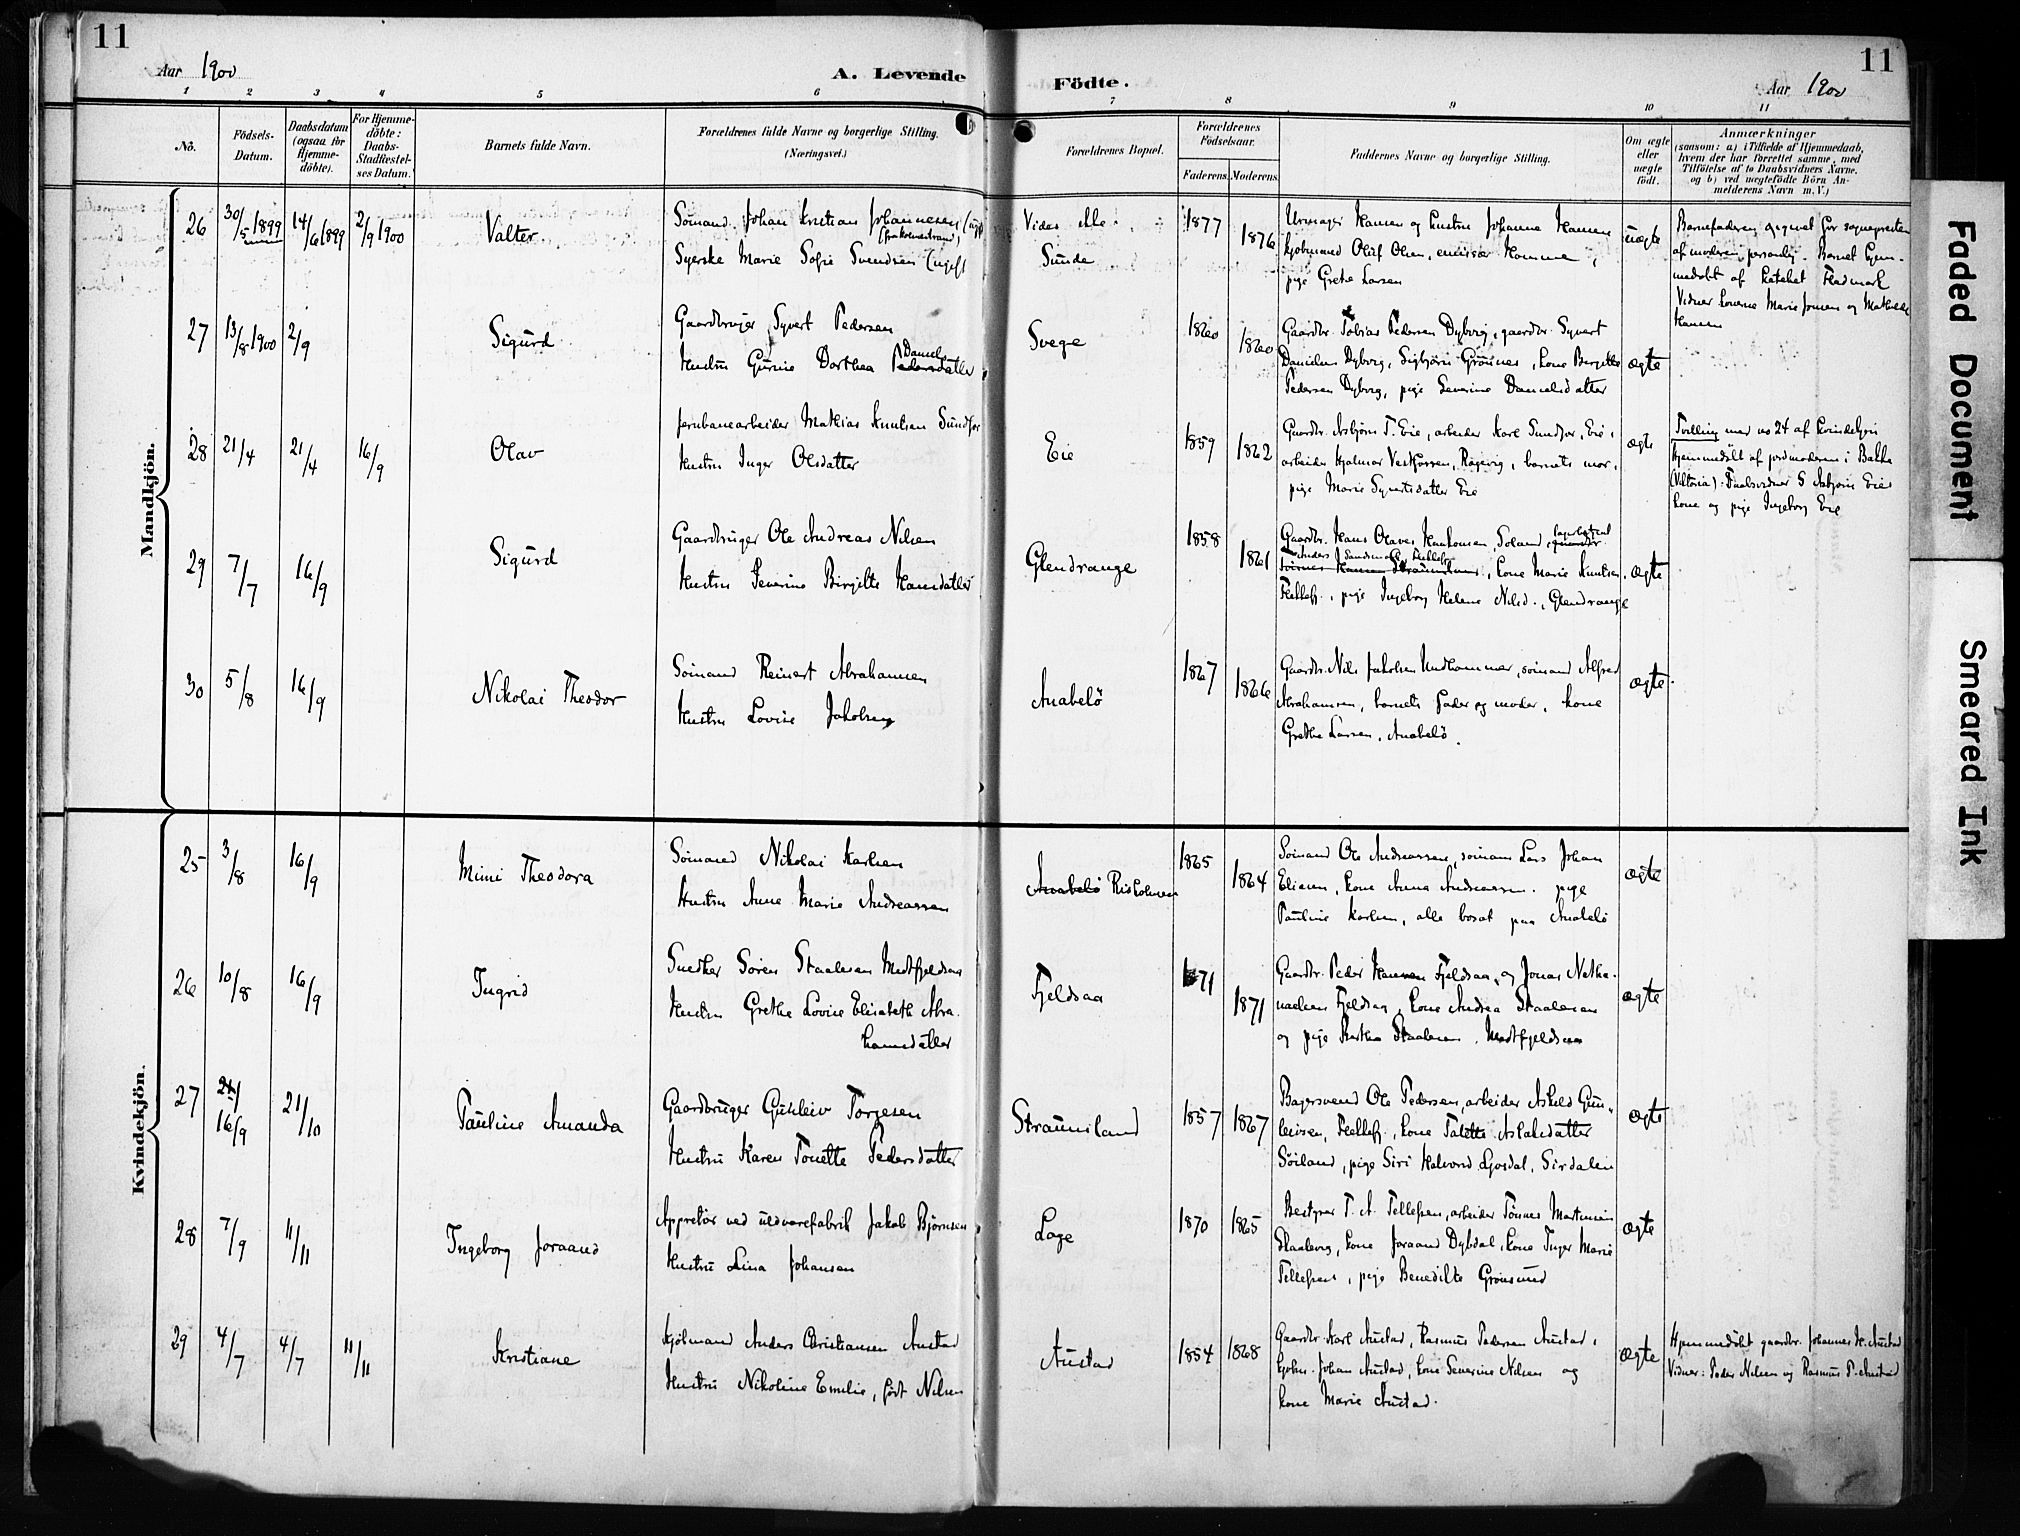 11
Aar 1900
A. Levende
Födte.
Aar 1900
11
1 2 3 4 5 6 7 8 9 10 11
No.
Födsels-
Datum.
Daabsdatum
(ogsaa for
Hjemme-
döbte).
For Hjemme-
döbte:
Daabs-
Stadfæstel-
ses Datum.
Barnets fulde Navn.
Forældrenes fulde Navne og borgerlige Stilling.
(Næringsvei.)
Forældrenes Bopæl.
Forældrenes
Födselsaar.
Faderens. Moderens.
Faddernes Navne og borgerlige Stilling.
Om ægte
eller
uægte
födt.
Anmærkninger
(saasom: a) i Tilfælde af Hjemmedaab,
hvem der har forrettet samme, med
Tilföielse af to Daabsvidners Navne.
og b) ved uægtefödte Börn An-
melderens Navn m. V.)
Mandkjön.
26 30/5 1899 14/6 1899 2/9 1900 Valter
Sömand Johan Kristian Johannesen (ugift
(fra Holmestrand)
Syerske Marie Sofie Svendsen (ugift
Vides ikke
Sunde
1877 1876
Urmager Hansen og hustru Johanne Hansen
kjøbmand Oluf Olsen, Hamme,
pige Grete Larsen
uægte
Barnefaderen opgivet for sognepresten
af moderen personlig. Barnet hjem-
medøbt af kateket Fladmark
Vidner konerne Marie Jonsen og Mathilde
Hansen
27 13/8 1900 2/9 Sigurd
Gaardbruger Syvert Pedersen
Hustru Gurine Dorthea Pedersdatter
Daniels
Svege
1860 1860
Gaardbr. Tobias Pedersen Dyborg, gaardbr. Syvert
Danielsen Dyborg, Sigbjørn Grönnes, kone Bergitte
Pedersen Dyborg, pige Severine Danielsdatter
ægte
28 21/4 21/4 16/9 Olav
Jernbanearbeider Mathias Knudsen Sundfør
Hustru Inger Olsdatter
Eie
1859 1862
Gaardbr. Asbjørn T. Eie, arbeider Karl Sundfor, Eie,
arbeider Hjalmar Vestfossen, Rægevig, barnets mor,
pige Marie Syvertsdatter Eie
ægte
Tvilling med no 24 af kvindekjøn
Hjemmedøbt af jordmoderen i Bakke
Daabsvidner S Asbjørn Eies
kone og pige Ingeborg Eie
29 7/7 16/9 Sigurd
Gaardbruger Ole Andreas Nilsen
Hustru Severine Birgitte Hansdatter
Glendrange
1858 1861
Gaardbr. Hans Olaves Haakonsen, Soland,
Anders Sandsmark, Flekkefj.
kone Marie Knutsen
Flekkefj., pige Ingeborg Helene Nilsd., Glendrange
ægte
30 5/8 16/9 Nikolai Theodor
Sömand Reinert Abrahamsen
Hustru Lovise Jakobsen
Anabelö
1867 1866
Gaardbr. Nils Jakobsen Undhammer, sömand Alfred
Abrahamsen, barnets fader og moder, kone
Grethe Larsen, Anabelö.
ægte
Kvindekjön.
25 3/8 16/9 Mimi Theodora
Sömand Nikolai Karlsen
Hustru Anne Marie Andreassen
Anabelö Risholmen
1865 1864
Sömand Ole Andreassen, sömann Lars Johan
Eliassen, kone Anna Andreassen, pige
Pauline Karlsen, alle bosat paa Anabelö
ægte
26 10/8 16/9 Ingrid
Snedker Sören Staalesen Midtfjeldsaa
Hustru Grethe Lovise Elisabeth Abra-
hamsdatter
Fjeldsaa
1871 1871
Gaardbr. Peder Hansen Fjeldsaa, og Jonas Natha-
naelsen Fjeldsaa, kone Andrea Staalesen
og pige Berthe Staalesen, Midtfjeldsaa
ægte
27 21/ 16/9 21/10 Pauline Amanda
Gaardbruger Gunleiv Torgesen
Hustru Karen Tonette Pedersdatter
Straumsland
1857 1867
Bagersvend Ole Pedersen, arbeider Askeld Gun-
leivsen, Flekkefj., kone Talette Aslaksdatter
Söiland, pige Siri Halvord Gosdal, Sirdalen
ægte
28 7/9 11/11 Ingeborg Joraand
Appretör ved uldvarefabrik Jakob Björnsen
Hustru Lina Johansen
Loge
1870 1865
Bestyrer T. A. Tellefsen, arbeider Tönnes Martinsen
Staalevig, kone Joraand Dybdal, kone Inger Marie
Tellefsen, pige Benedikte Grönsund
ægte
29 4/7 4/7 11/11 Kristiane
Kjöbmand Anders Christiansen Austad
Hustru Nikoline Emilie, født Nilsen
Austad
1854 1868
Gaardbr. Karl Austad, Rasmus Pedersen Austad,
kjøbm. Johan Austad, kone Severine Nilsen og
kone Marie Austad.
ægte
Hjemmedöbt gaardbr. Johannes K. Austad
Vidner: Peder Nilsen og Rasmus P. Austad
Faded Document
Smeared Ink